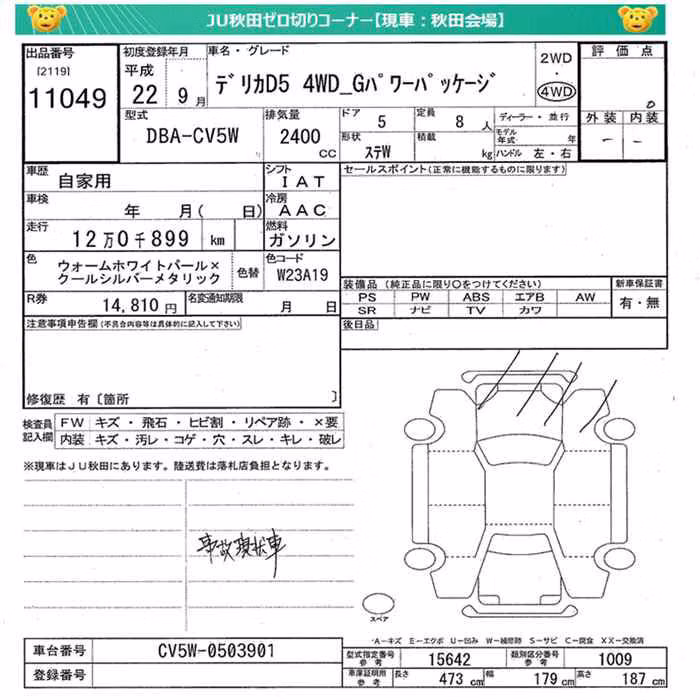 JU秋田ゼロ切りコーナー【現車：秋田会場】
出品番号
[2119]
11049
初度登録年月
平成
22 9月
車名・グレード
デリカD5 4WD_Gパワーパッケージ
2WD
・
4WD
評価点
0
外装 内装
－ －
型式
DBA-CV5W
排気量
2400
CC
ドア
5
定員
8人
ディーラー・並行
形状
ステW
積載
kg
モデル年式 年
ハンドル 左・右
車歴
自家用
シフト
IAT
車検
年 月( 日)
冷房
AAC
走行
12万0千899 km
燃料
ガソリン
色
ウォームホワイトパール×
クールシルバーメタリック
色替
色コード
W23A19
R券
14,810円
名変通知期限
月 日
セールスポイント(正常に機能するものに限ります)
装備品 (純正品に限り○をつけてください)
新車保証書
PS PW ABS エアB AW
SR ナビ TV カワ
有・無
後日品
注意事項申告欄(不具合内容等は具体的に記入して下さい)
修復歴 有〔箇所 〕
検査員記入欄
FW キズ・飛石・ヒビ割・リペア跡・×要
内装 キズ・汚レ・コゲ・穴・スレ・キレ・破レ
※現車はJU秋田にあります。陸送費は落札店負担となります。
事故現状車
スペア
A－キズ E－エクボ U－凹み W－補修跡 S－サビ C－腐食 XX－交換済
車台番号
CV5W-0503901
登録番号
型式指定番号
参考
15642
類別区分番号
参考
1009
車庫証明用
参考
長さ 473 cm
幅 179 cm
高さ 187 cm